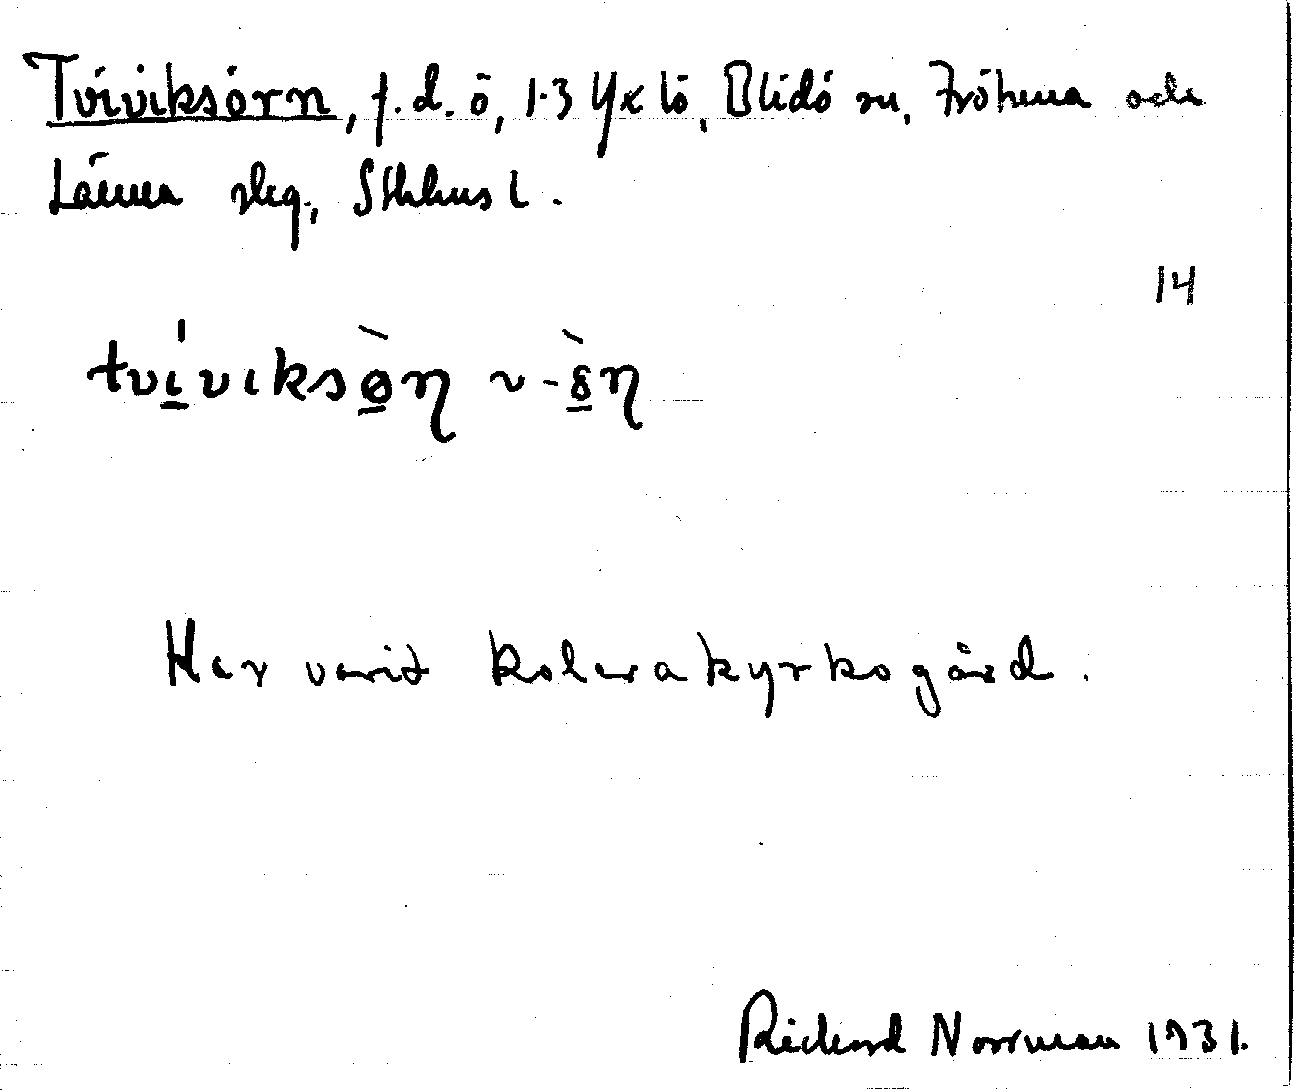 Tvíviksörn, f.d. ö, 1.3 Yxlö, Blidö sn, Fröhuna och
Länna skg., Sthlms l.
14
tvíviksø̀η ~ -ö̀η
Har varit kolerakyrkogård.
Rickard Norrman 1931.